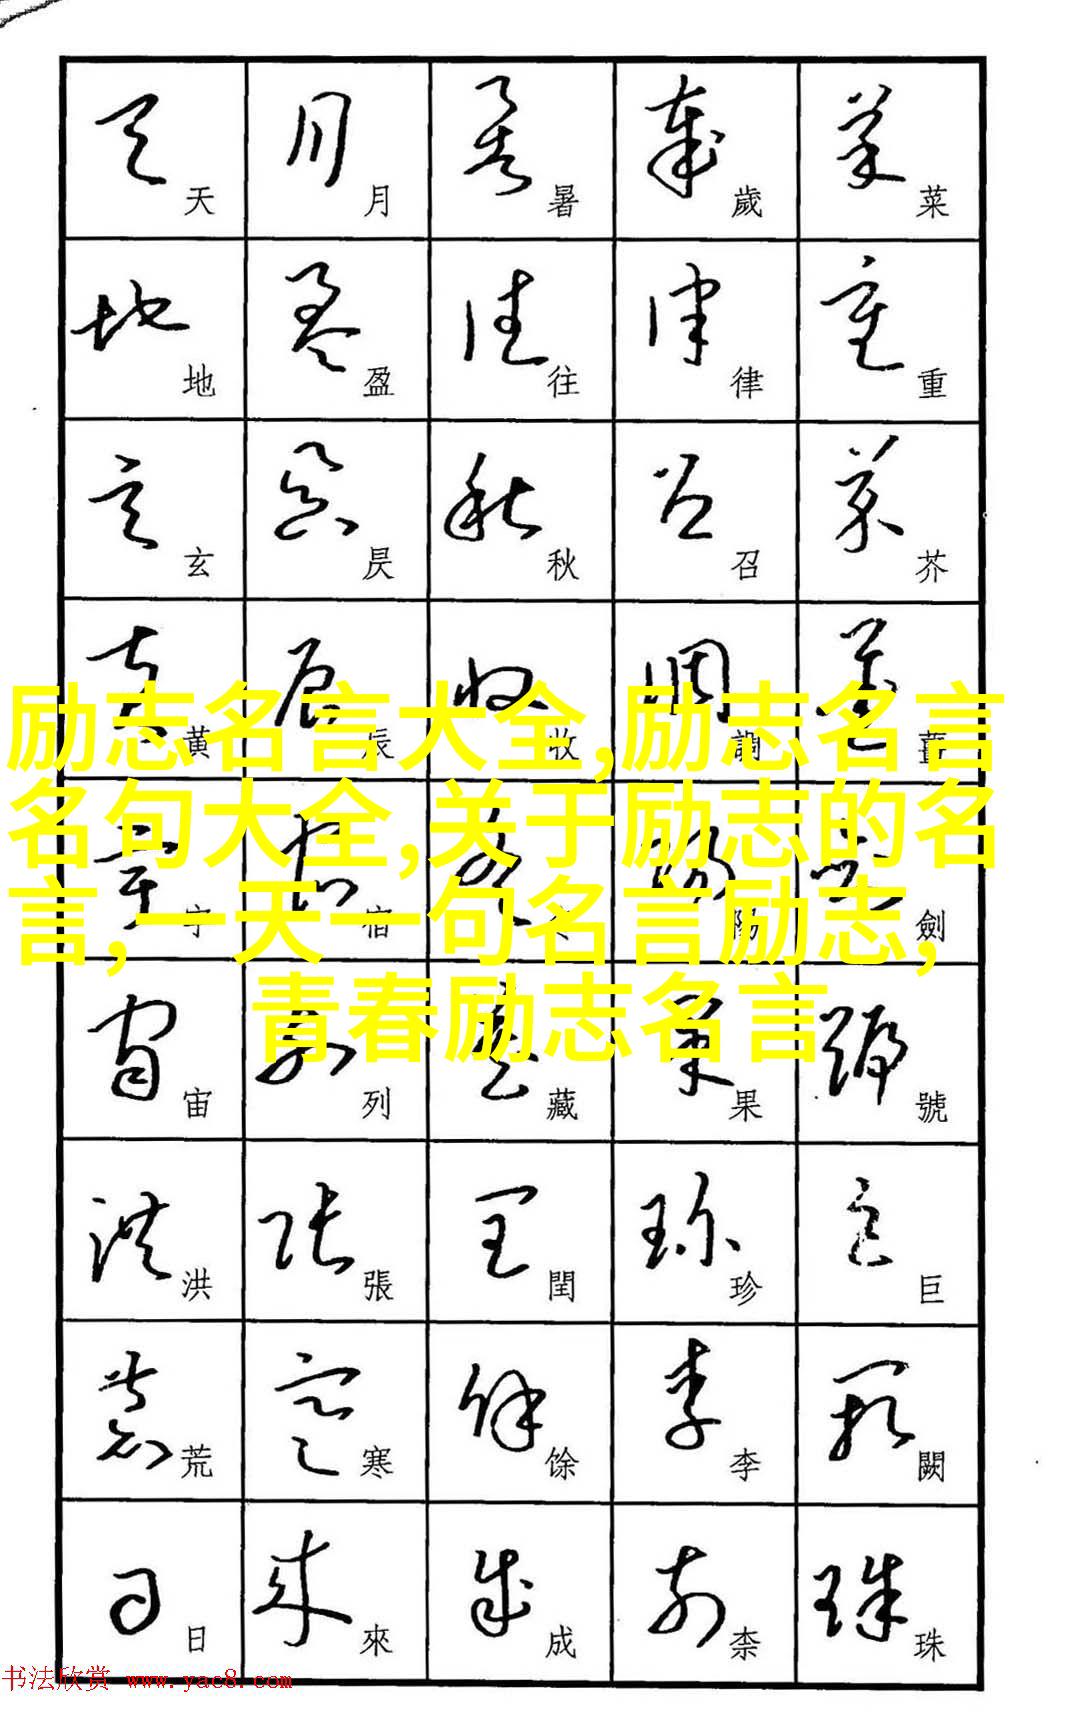 天 月 暑 歲 菜
地 盈 往 律 重
玄 昃 秋 召 芥
黃 辰 收 調 薑
励志名言大全,励志名言
名句大全,关于励志的名
言,一天一句名言励志,
青春励志名言
宇 宿 陽 劍
宙 列 藏 果 號
洪 張 閏 珍 巨
荒 寒 馀 李 闕
日 來 成 柰 珠
书法欣赏 www.yac8.com